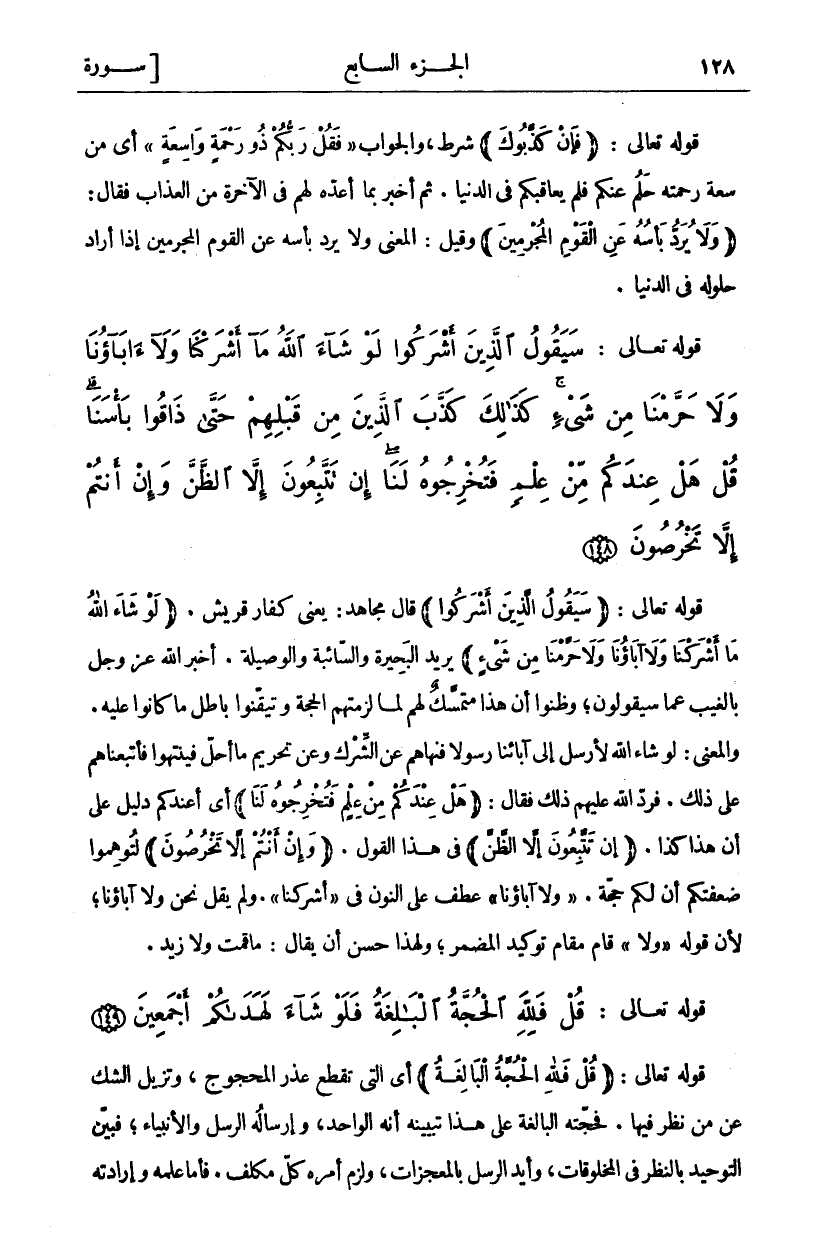 ١٢٨ الجـــزء الســـابع [ ســـورة
قوله تعالى : ﴿ فَإِنْ كَذَّبُوكَ ﴾ شرط ، والجواب « فَقُلْ رَبُّكُمْ ذُو رَحْمَةٍ وَاسِعَةٍ » أى من
سعة رحمته حَلُم عنكم فلم يعاقبكم فى الدنيا . ثم أخبر بما أعدّه لهم فى الآخرة من العذاب فقال :
﴿ وَلَا يُرَدُّ بَأْسُهُ عَنِ الْقَوْمِ الْمُجْرِمِينَ ﴾ وقيل : المعنى ولا يرد بأسه عن القوم المجرمين إذا أراد
حلوله فى الدنيا .
قوله تعــالى : سَيَقُولُ ٱلَّذِينَ أَشْرَكُوا لَوْ شَآءَ ٱللَّهُ مَآ أَشْرَكْنَا وَلَآ ءَابَآؤُنَا
وَلَا حَرَّمْنَا مِن شَىْءٍ ۚ كَذَٰلِكَ كَذَّبَ ٱلَّذِينَ مِن قَبْلِهِمْ حَتَّىٰ ذَاقُوا بَأْسَنَا ۗ
قُلْ هَلْ عِندَكُم مِّنْ عِلْمٍ فَتُخْرِجُوهُ لَنَا ۖ إِن تَتَّبِعُونَ إِلَّا ٱلظَّنَّ وَإِنْ أَنتُمْ
إِلَّا تَخْرُصُونَ ﴿١٤٨﴾
قوله تعالى : ﴿ سَيَقُولُ الَّذِينَ أَشْرَكُوا ﴾ قال مجاهد : يعنى كفار قريش . ﴿ لَوْ شَاءَ اللهُ
مَا أَشْرَكْنَا وَلَا آبَاؤُنَا وَلَا حَرَّمْنَا مِن شَىْءٍ ﴾ يريد البَحِيرة والسّائبة والوصيلة . أخبر الله عز وجل
بالغيب عما سيقولون ؛ وظنوا أن هذا متمسَّكٌ لهم لمــا لزمتهم الحجة وتيقّنوا باطل ما كانوا عليه .
والمعنى : لو شاء الله لأرسل إلى آبائنا رسولا فنهاهم عن الشِّرك وعن تحريم ما أحلّ فينتهوا فأتبعناهم
على ذلك . فردّ الله عليهم ذلك فقال : ﴿ هَلْ عِنْدَكُمْ مِنْ عِلْمٍ فَتُخْرِجُوهُ لَنَا ﴾ أى أعندكم دليل على
أن هذا كذا . ﴿ إِن تَتَّبِعُونَ إِلَّا الظَّنَّ ﴾ فى هــذا القول . ﴿ وَإِنْ أَنْتُمْ إِلَّا تَخْرُصُونَ ﴾ لتُوهِموا
ضعفتكم أن لكم حجّة . « ولا آباؤنا » عطف على النون فى « أشركنا » . ولم يقل نحن ولا آباؤنا ؛
لأن قوله « ولا » قام مقام توكيد المضمر ؛ ولهذا حسن أن يقال : ما قمت ولا زيد .
قوله تعــالى : قُلْ فَلِلَّهِ ٱلْحُجَّةُ ٱلْبَـٰلِغَةُ فَلَوْ شَآءَ لَهَدَىٰكُمْ أَجْمَعِينَ ﴿١٤٩﴾
قوله تعالى : ﴿ قُلْ فَلِلهِ الْحُجَّةُ الْبَالِغَــةُ ﴾ أى التى تقطع عذر المحجوج ، وتزيل الشك
عن من نظر فيها . فحجّته البالغة على هــذا تبيينه أنه الواحد ، وإرسالُه الرسل والأنبياء ؛ فبيّن
التوحيد بالنظر فى المخلوقات ، وأيد الرسل بالمعجزات ، ولزم أمره كلّ مكلف . فأما علمه وإرادته